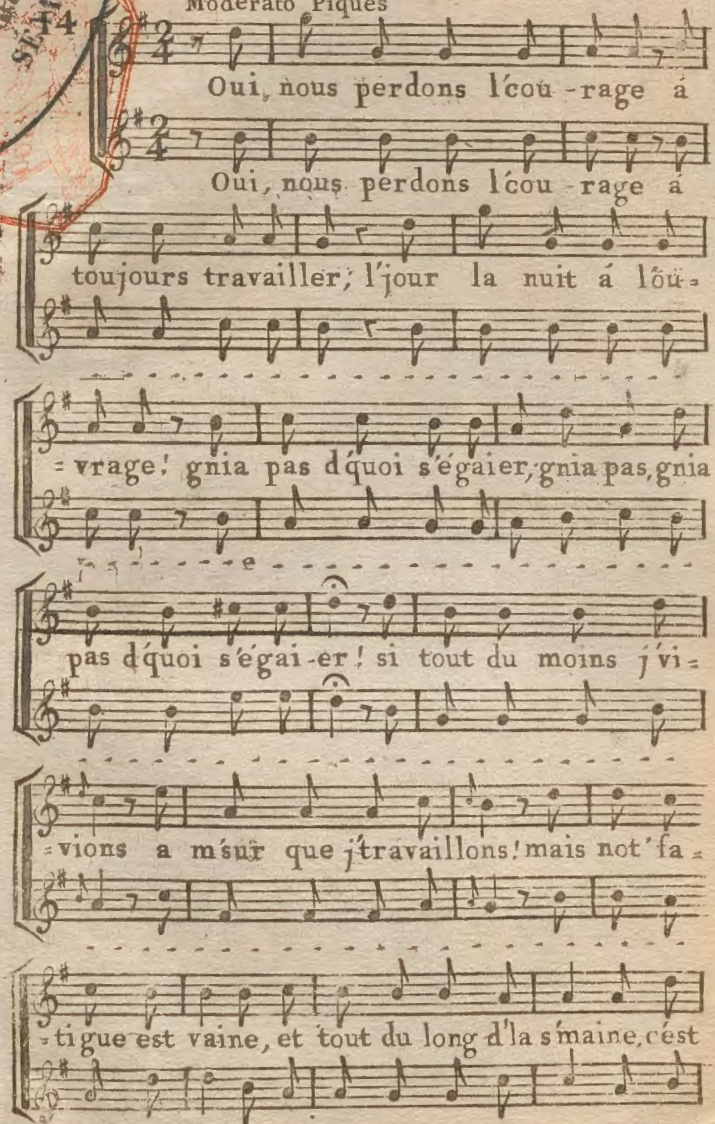 Moderato Piqués
14
SÉM
Oui, nous perdons l'cou-rage á
Oui, nous perdons l'cou-rage á
toujours travailler; l'jour la nuit á l'ou=
=vrage! gnia pas d'quoi s'égaier, gnia pas, gnia
pas d'quoi s'égai-er! si tout du moins j'vi=
=vions a m'sur que j'travaillons! mais not' fa=
=tigue est vaine, et tout du long d'la s'maine, c'est